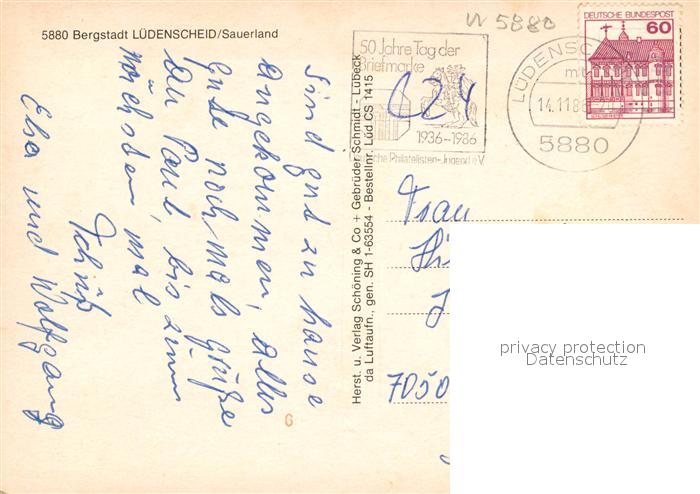 5880 Bergstadt LÜDENSCHEID/Sauerland
Sind gut zu hause
Angekommen, Alles
Gute noch mals grüße
An Paul, bis zum
nächsten mal
Tchüß
Elsa und Wolfgang
6
Herst. u. Verlag Schöning & Co + Gebrüder Schmidt - Lübeck
da Luftaufn., gen. SH 1-63554 - Bestellnr. Lüd CS 1415
W 5880
50 Jahre Tag der
Briefmarke
1936-1986
Philatelisten-Jugend e.V.
LÜDENSC
14.11.86
5880
DEUTSCHE BUNDESPOST
60
Frau
7050
privacy protection
Datenschutz